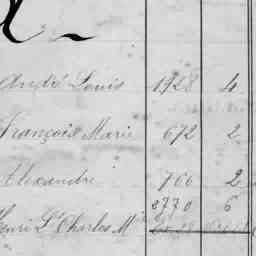 André Louis 1928 4
François Marie 672 2
Alexandre 766 2
8770 6
Henri L. Charles M